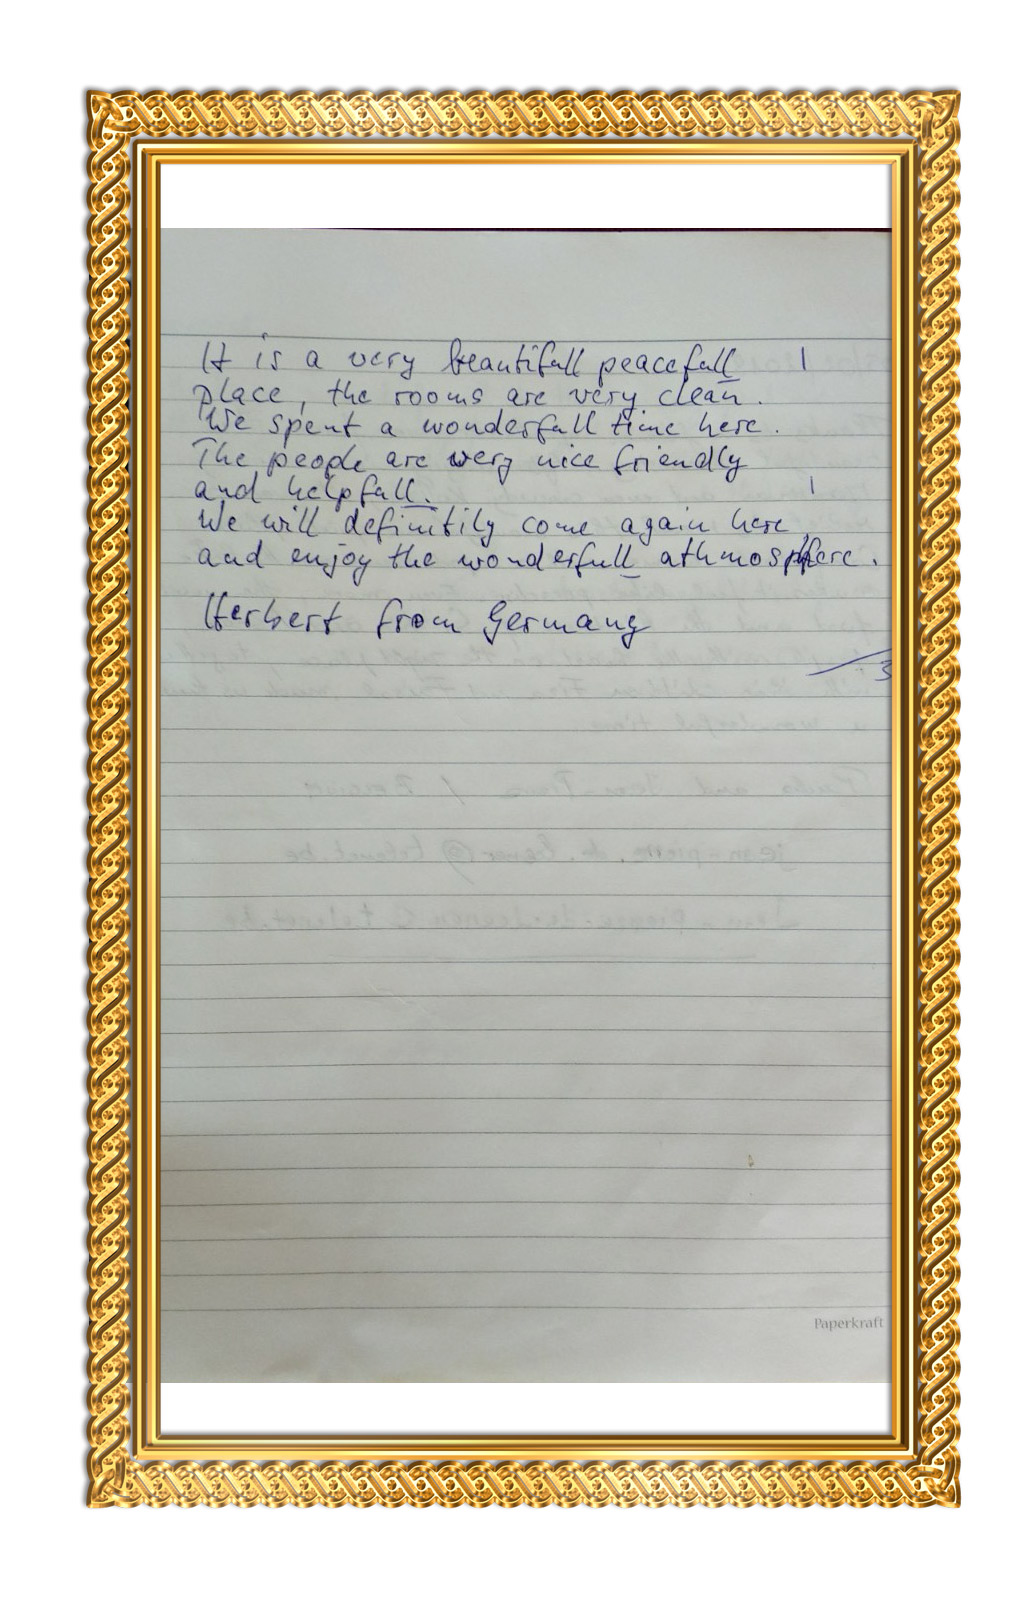 It is a very beautifull peacefull
place, the rooms are very clean.
We spent a wonderfull time here.
The people are very nice friendly
and helpfull.
We will definitily come again here
and enjoy the wonderfull athmosphere.
Herbert from Germany
Paperkraft